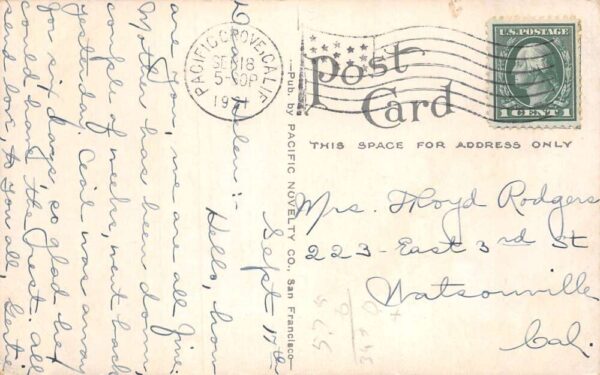 Sept 17th
Dear Helen:-
Hello, how
are you, we are all fine.
Mother has been down,
couple of weeks, went back
yesterday. Cecil was away
for six days, so glad he
could have the rest. all
send love to you all, Gertie
PACIFIC GROVE, CALIF.
SEP 18
5-30P
Post
Card
U.S. POSTAGE
1 CENT 1
THIS SPACE FOR ADDRESS ONLY
—Pub. by PACIFIC NOVELTY CO., San Francisco—
Mrs. Floyd Rodgers
223- East 3rd St
Watsonville
Cal.